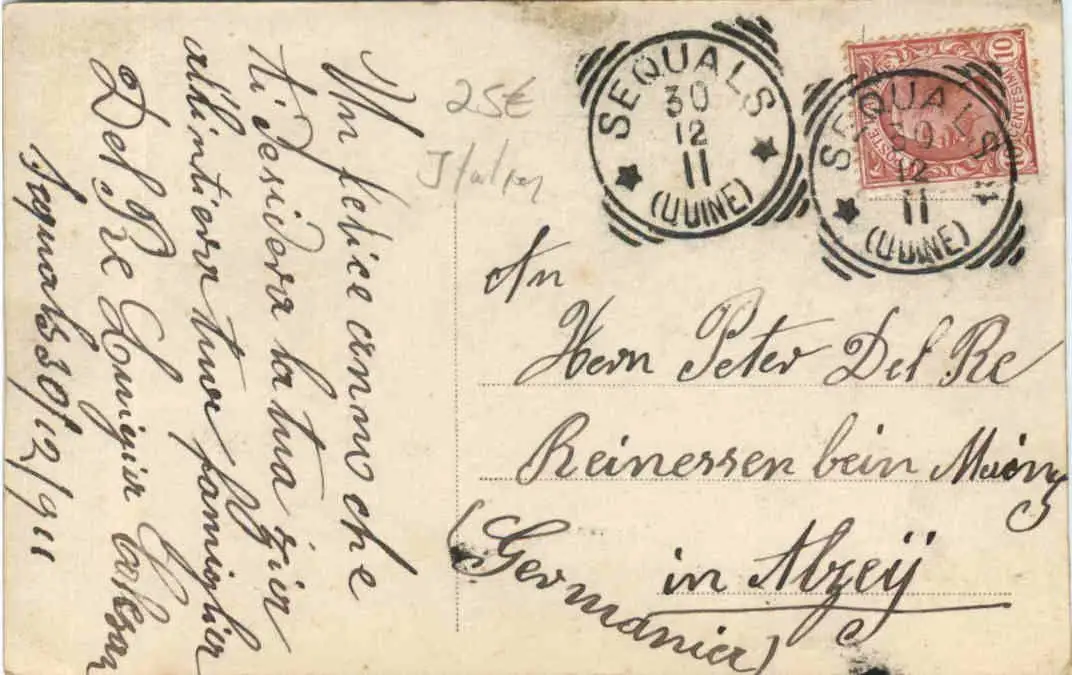 Un felice anno che
ti desidera la tua zier
all'intiera tua
Del Re Luigier
Sequals 30/12/911
25€
Italien
SEQUALS
30
12
11
(UDINE)
SEQUALS
30
12
11
(UDINE)
POSTE
CENTESIMI 10
An
Hern Peter Del Re
Reinessen bein Mainz
in Alzeÿ
(Germanier)